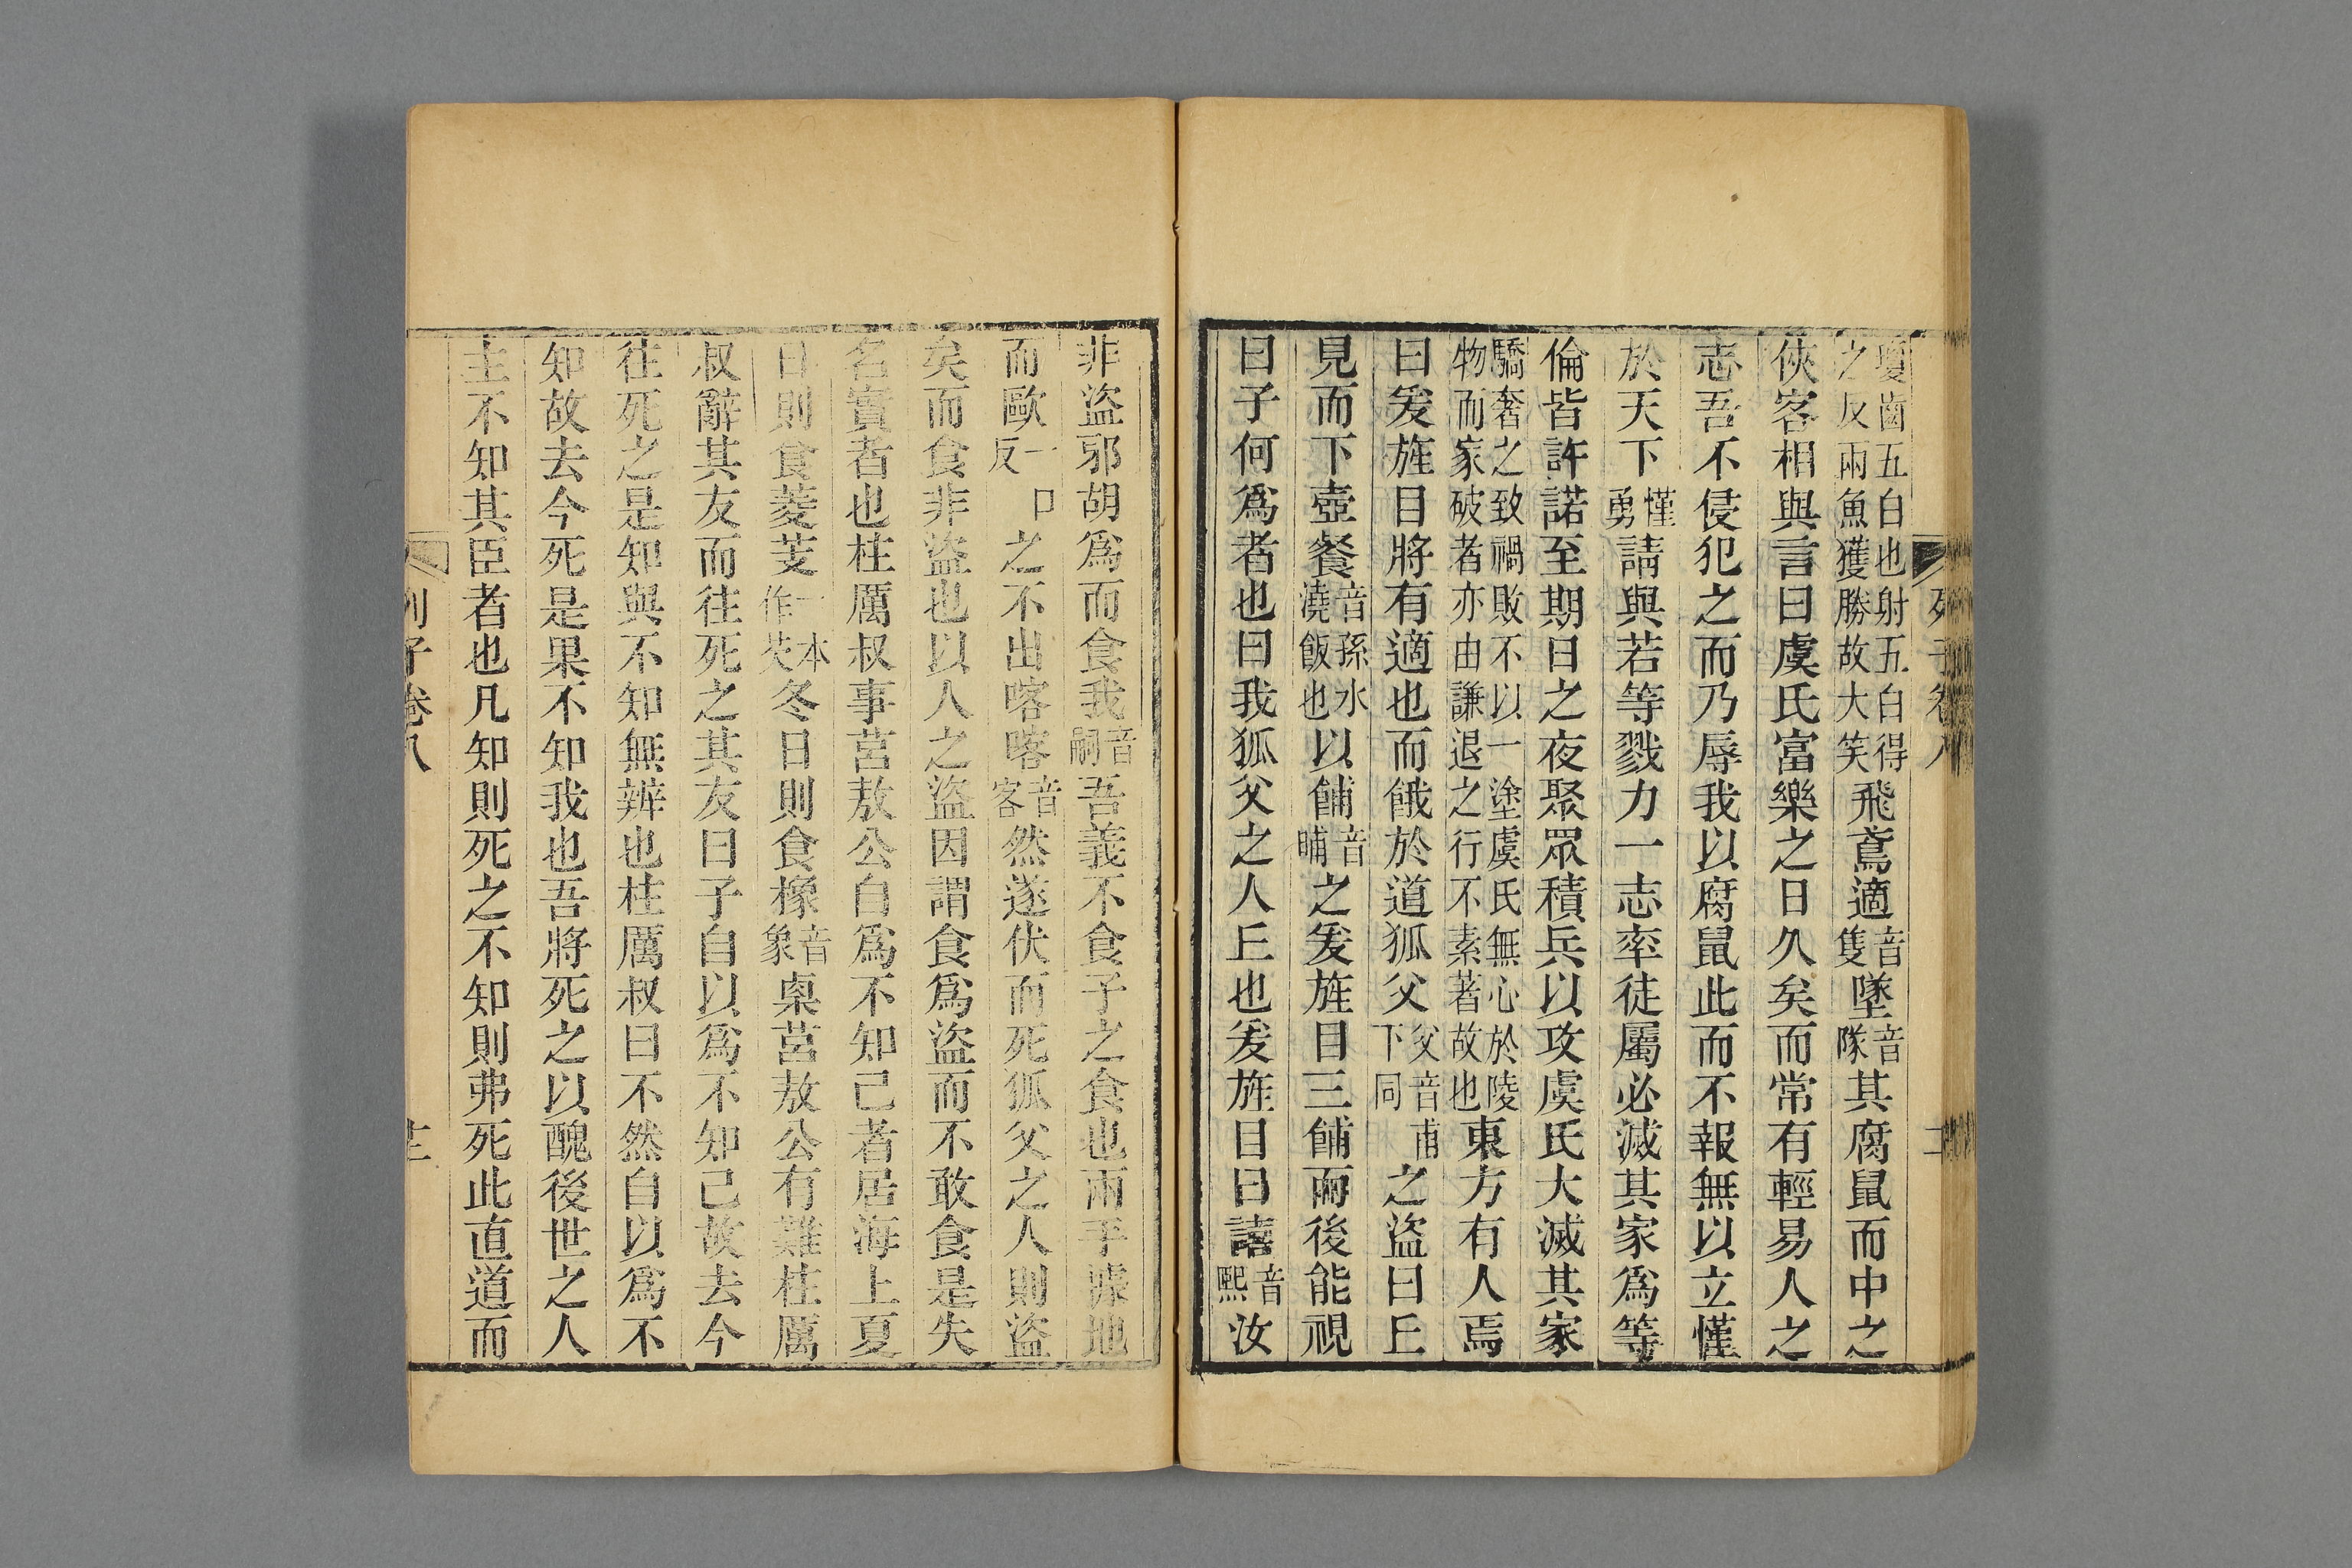 瓊齒五白也射五白得
之反兩魚獲勝故大笑
飛鳶適音隻墜音隊其腐鼠而中之
俠客相與言曰虞氏富樂之日久矣而常有輕易人之
志吾不侵犯之而乃辱我以腐鼠此而不報無以立慬
於天下慬勇請與若等戮力一志率徒屬必滅其家爲等
倫皆許諾至期日之夜聚眾積兵以攻虞氏大滅其家
驕奢之致禍敗不以一塗虞氏無心於陵
物而家破者亦由謙退之行不素著故也
東方有人焉
曰爰旌目將有適也而餓於道狐父父音甫下同之盜曰丘
見而下壺餐音孫水澆飯也以餔音晡之爰旌目三餔而後能視
曰子何爲者也曰我狐父之人丘也爰旌目曰譆音熙汝
列子卷八
非盜邪胡爲而食我音嗣吾義不食子之食也兩手據地
而歐一口反之不出喀喀音客然遂伏而死狐父之人則盜
矣而食非盜也以人之盜因謂食爲盜而不敢食是失
名實者也柱厲叔事莒敖公自爲不知己者居海上夏
日則食菱芰一本作芡冬日則食橡音象栗莒敖公有難柱厲
叔辭其友而往死之其友曰子自以爲不知己故去今
往死之是知與不知無辨也柱厲叔曰不然自以爲不
知故去今死是果不知我也吾將死之以醜後世之人
主不知其臣者也凡知則死之不知則弗死此直道而
列子卷八